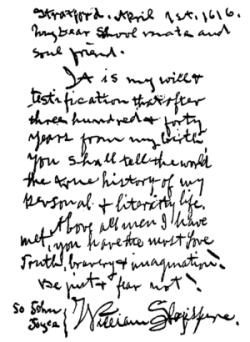 Stratford. April 1st. 1616.
My dear Shool mate and
soul friend.
It is my will &
testification that after
three hundred & forty
years from my birth
You shall tell the world
the true history of my
personal & literary life.
Above all men I have
met, you have the most love
truth, bravery & imagination!
Be just & fear not!
So John
Joyce } William